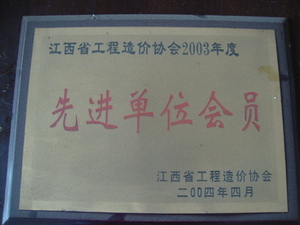 江西省工程造价协会2003年度
先进单位会员
江西省工程造价协会
二00四年四月